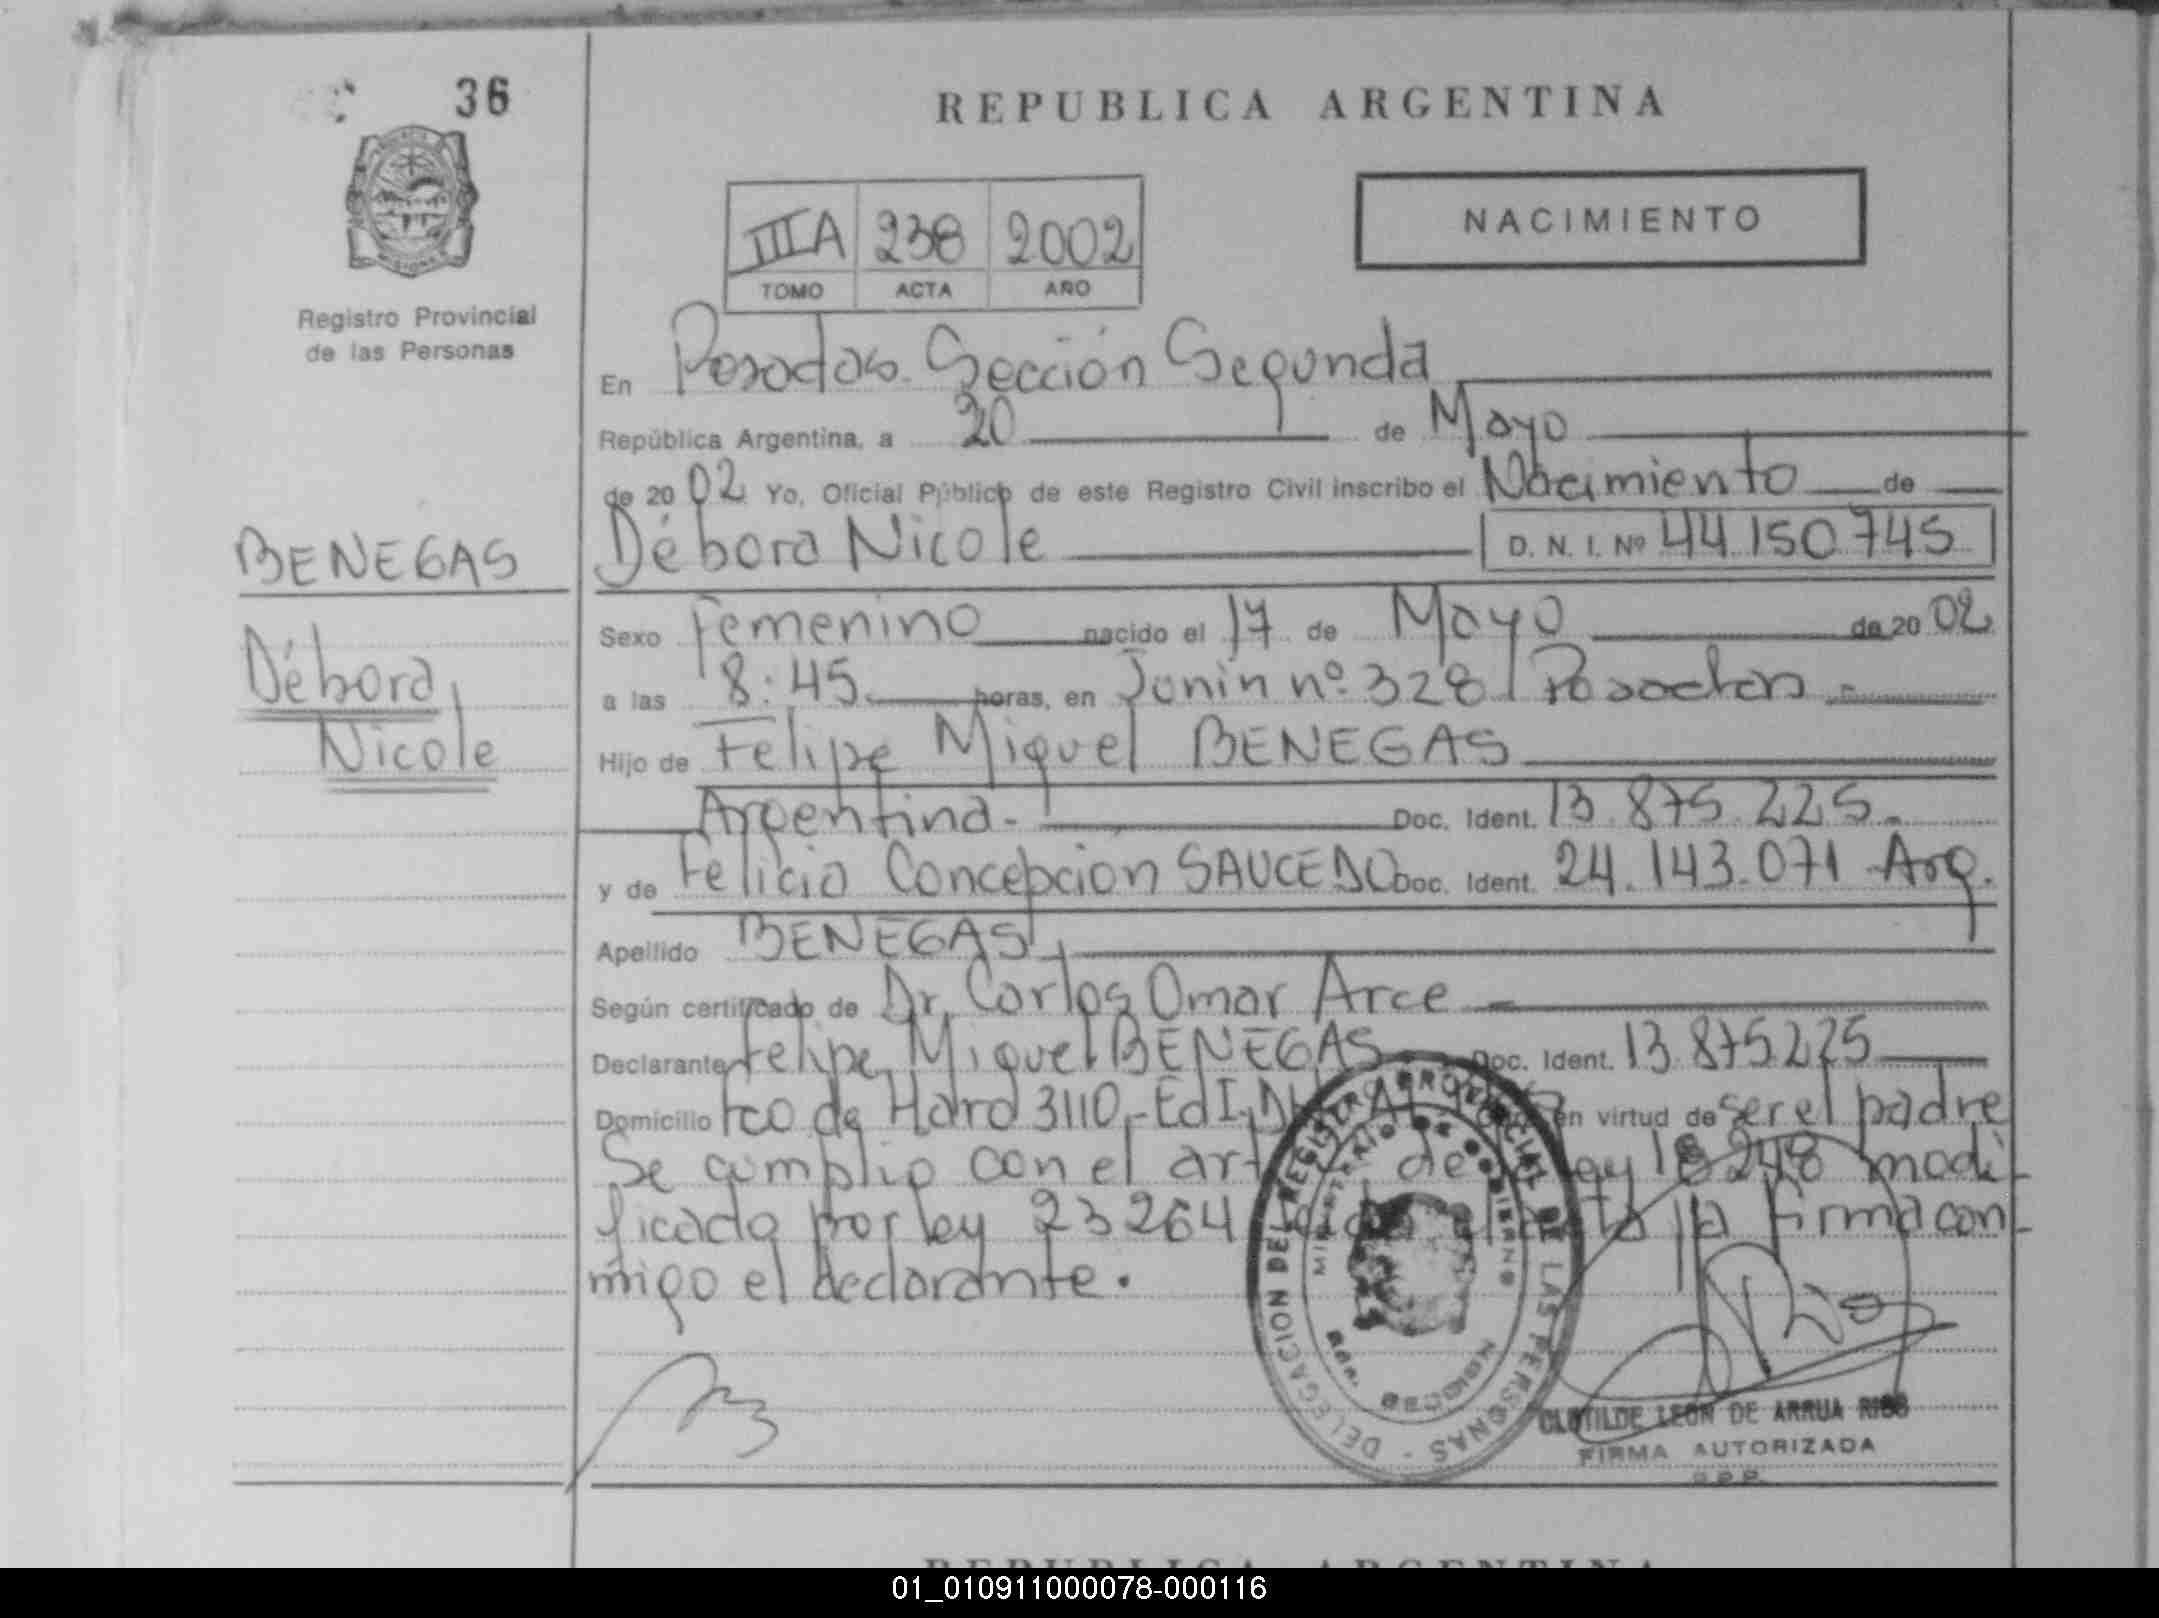 36
REPUBLICA ARGENTINA
IIIA 238 2002
TOMO ACTA AÑO
NACIMIENTO
MISIONES
Registro Provincial
de las Personas
En Posadas Sección Segunda
República Argentina, a 20 de Mayo
de 2002 Yo, Oficial Público de este Registro Civil inscribo el Nacimiento de
BENEGAS
Débora Nicole
Débora Nicole D. N. I. Nº 44.150.745
Sexo Femenino nacido el 17 de Mayo de 2002
a las 8:45 horas, en Junín nº 328 Posadas -
Hijo de Felipe Miguel BENEGAS
Argentina.- Doc. Ident. 13.875.225.-
y de Felicia Concepcion SAUCEDO Doc. Ident. 24.143.071 Arg.
Apellido BENEGAS
Según certificado de Dr. Carlos Omar Arce
Declarante Felipe Miguel BENEGAS Doc. Ident. 13.875.225
Domicilio Fco de Haro 3110 - Ed I, en virtud de ser el padre
Se cumplio con el art de ley 18248 modi-
ficado por ley 23264 la firma con-
migo el declarante.
DELEGACION DEL REGISTRO PROVINCIAL DE LAS PERSONAS
MINISTERIO DE GOBIERNO
CLOTILDE LEON DE ARRUA RIOS
FIRMA AUTORIZADA
REPUBLICA ARGENTINA
01_010911000078-000116